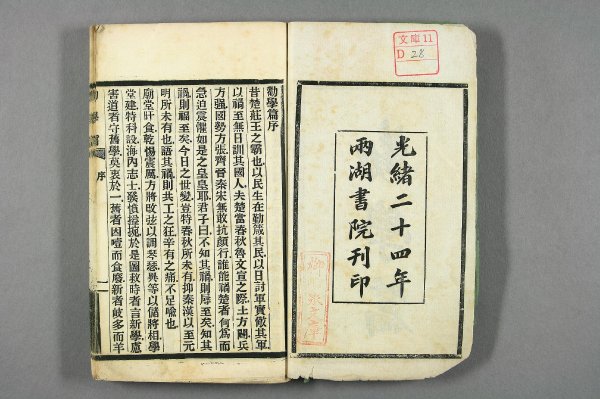 文庫11
D 28
光緒二十四年
兩湖書院刊印
勸學篇序
昔楚莊王之霸也以民生在勤箴其民以日討軍實儆其軍
以禍至無日訓其國人夫楚當春秋魯文宣之際土方闢兵
方强國勢方張齊晉秦宋無敢抗顔行誰能禍楚者何爲而
急迫震懼如是之皇皇耶君子曰不知其禍則辱至矣知其
禍則福至矣今日之世變豈特春秋所未有抑秦漢以至元
明所未有也語其禍則共工之狂辛有之痛不足喻也
廟堂旰食乾惕震厲方將改弦以調琴瑟異等以儲將相學
堂建特科設海內志士發憤搤捥於是圖救時者言新學慮
害道者守舊學莫衷於一舊者因噎而食廢新者歧多而羊
序
一